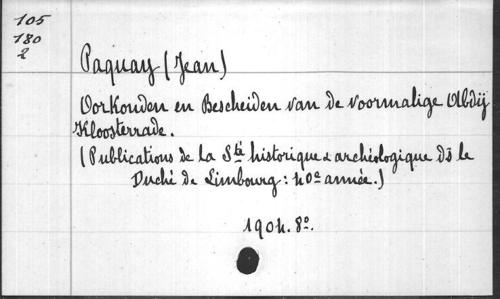 105
180
2
Paquay (Jean)
Oorkonden en Bescheiden van de voormalige Abdij
Kloosterrade.
(Publications de la Sté historique & archéologique ds le
Duché de Limbourg : 40e année.)
1904. 8º.